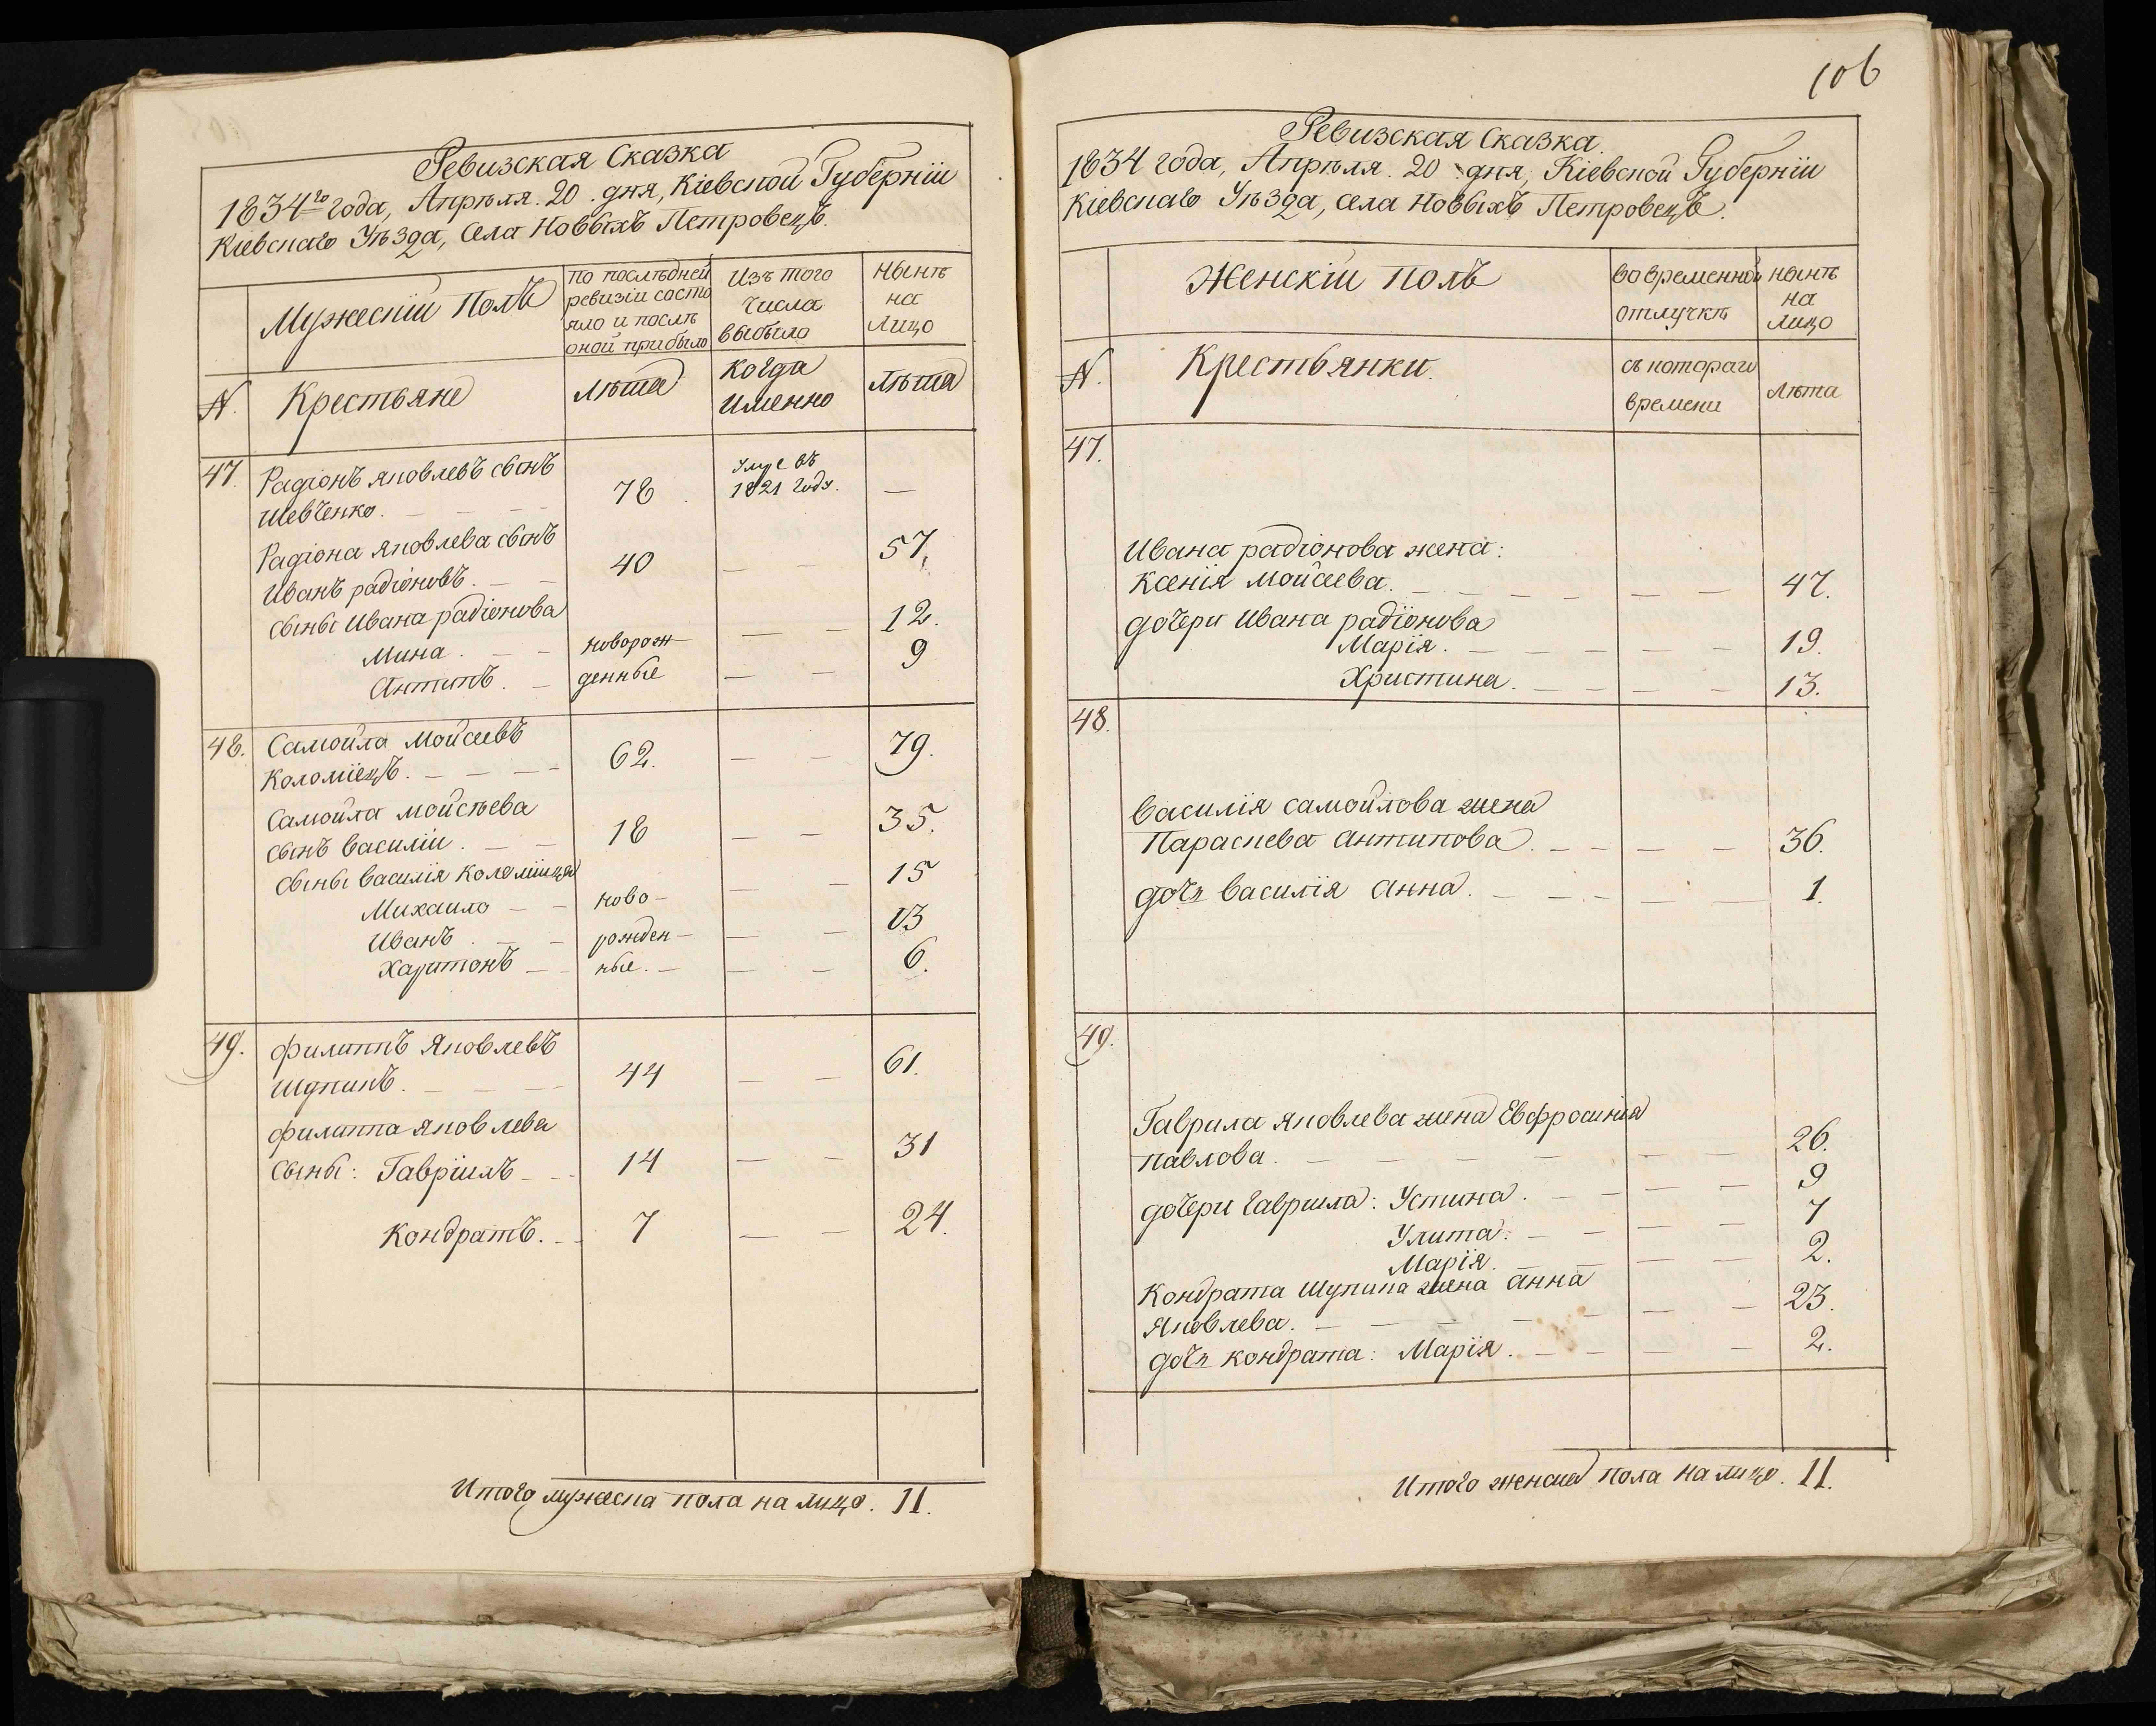 Ревизская Сказка
1834го года, Апрѣля. 20. дня, Кіевской Губерніи
Кіевскаго Уѣзда, села Новыхъ Петровецъ.
Мужескій Полъ
по послѣдней
ревизіи состо
яло и послѣ
оной прибыло
Изъ того
числа
выбыло
Нынѣ
на
Лицо
N. Крестьяне
Лѣта
Когда
Именно
Лѣта
47. Радіонъ Яковлевъ сынъ
Шевченко. 78 1821 году. —
Радіона Яковлева сынъ
Иванъ радіоновъ. 40 — — 57.
сыны Ивана радіонова
Мина. — новорож- — — 12.
Антипъ. — денные — — 9
48. Самойла Мойсеевъ
Коломіецъ. 62. — — 79.
Самойла Мойсѣева
сынъ Василій. 18 — — 35.
Сыны Василія Коломійца
Михаило — ново- — — 15
Иванъ. — рожден- — — 13
Харитонъ — ные. — — — 6.
49. Филиппъ Яковлевъ
Щупикъ. 44 — — 61.
Филиппа Яковлева
сыны: Гавріилъ — 14 — — 31
Кондратъ. — 7 — — 24.
Итого мужеска пола на лицо. 11.
106
Ревизская Сказка.
1834 года, Апрѣля. 20 дня, Кіевской Губерніи
Кіевскаго Уѣзда, села Новыхъ Петровецъ.
Женскій полъ
во временной
отлучкѣ
нынѣ
на
лицо
N. Крестьянки.
съ котораго
времени
Лѣта
47.
Ивана радіонова жена:
Ксенія Мойсеева. 47.
дочери Ивана радіонова
Марія. 19.
Христина. 13.
48.
Василія самойлова жена
Параскева Антипова. 36.
дочь Василія Анна. 1.
49.
Гаврила Яковлева жена Евфросинія
Павлова. 26.
дочери Гаврила: Устина. 9
Улита. 7
Марія. 2.
Кондрата Щупика жена Анна
Яковлева. 23.
дочь Кондрата: Марія. 2.
Итого женска пола на лицо. 11.